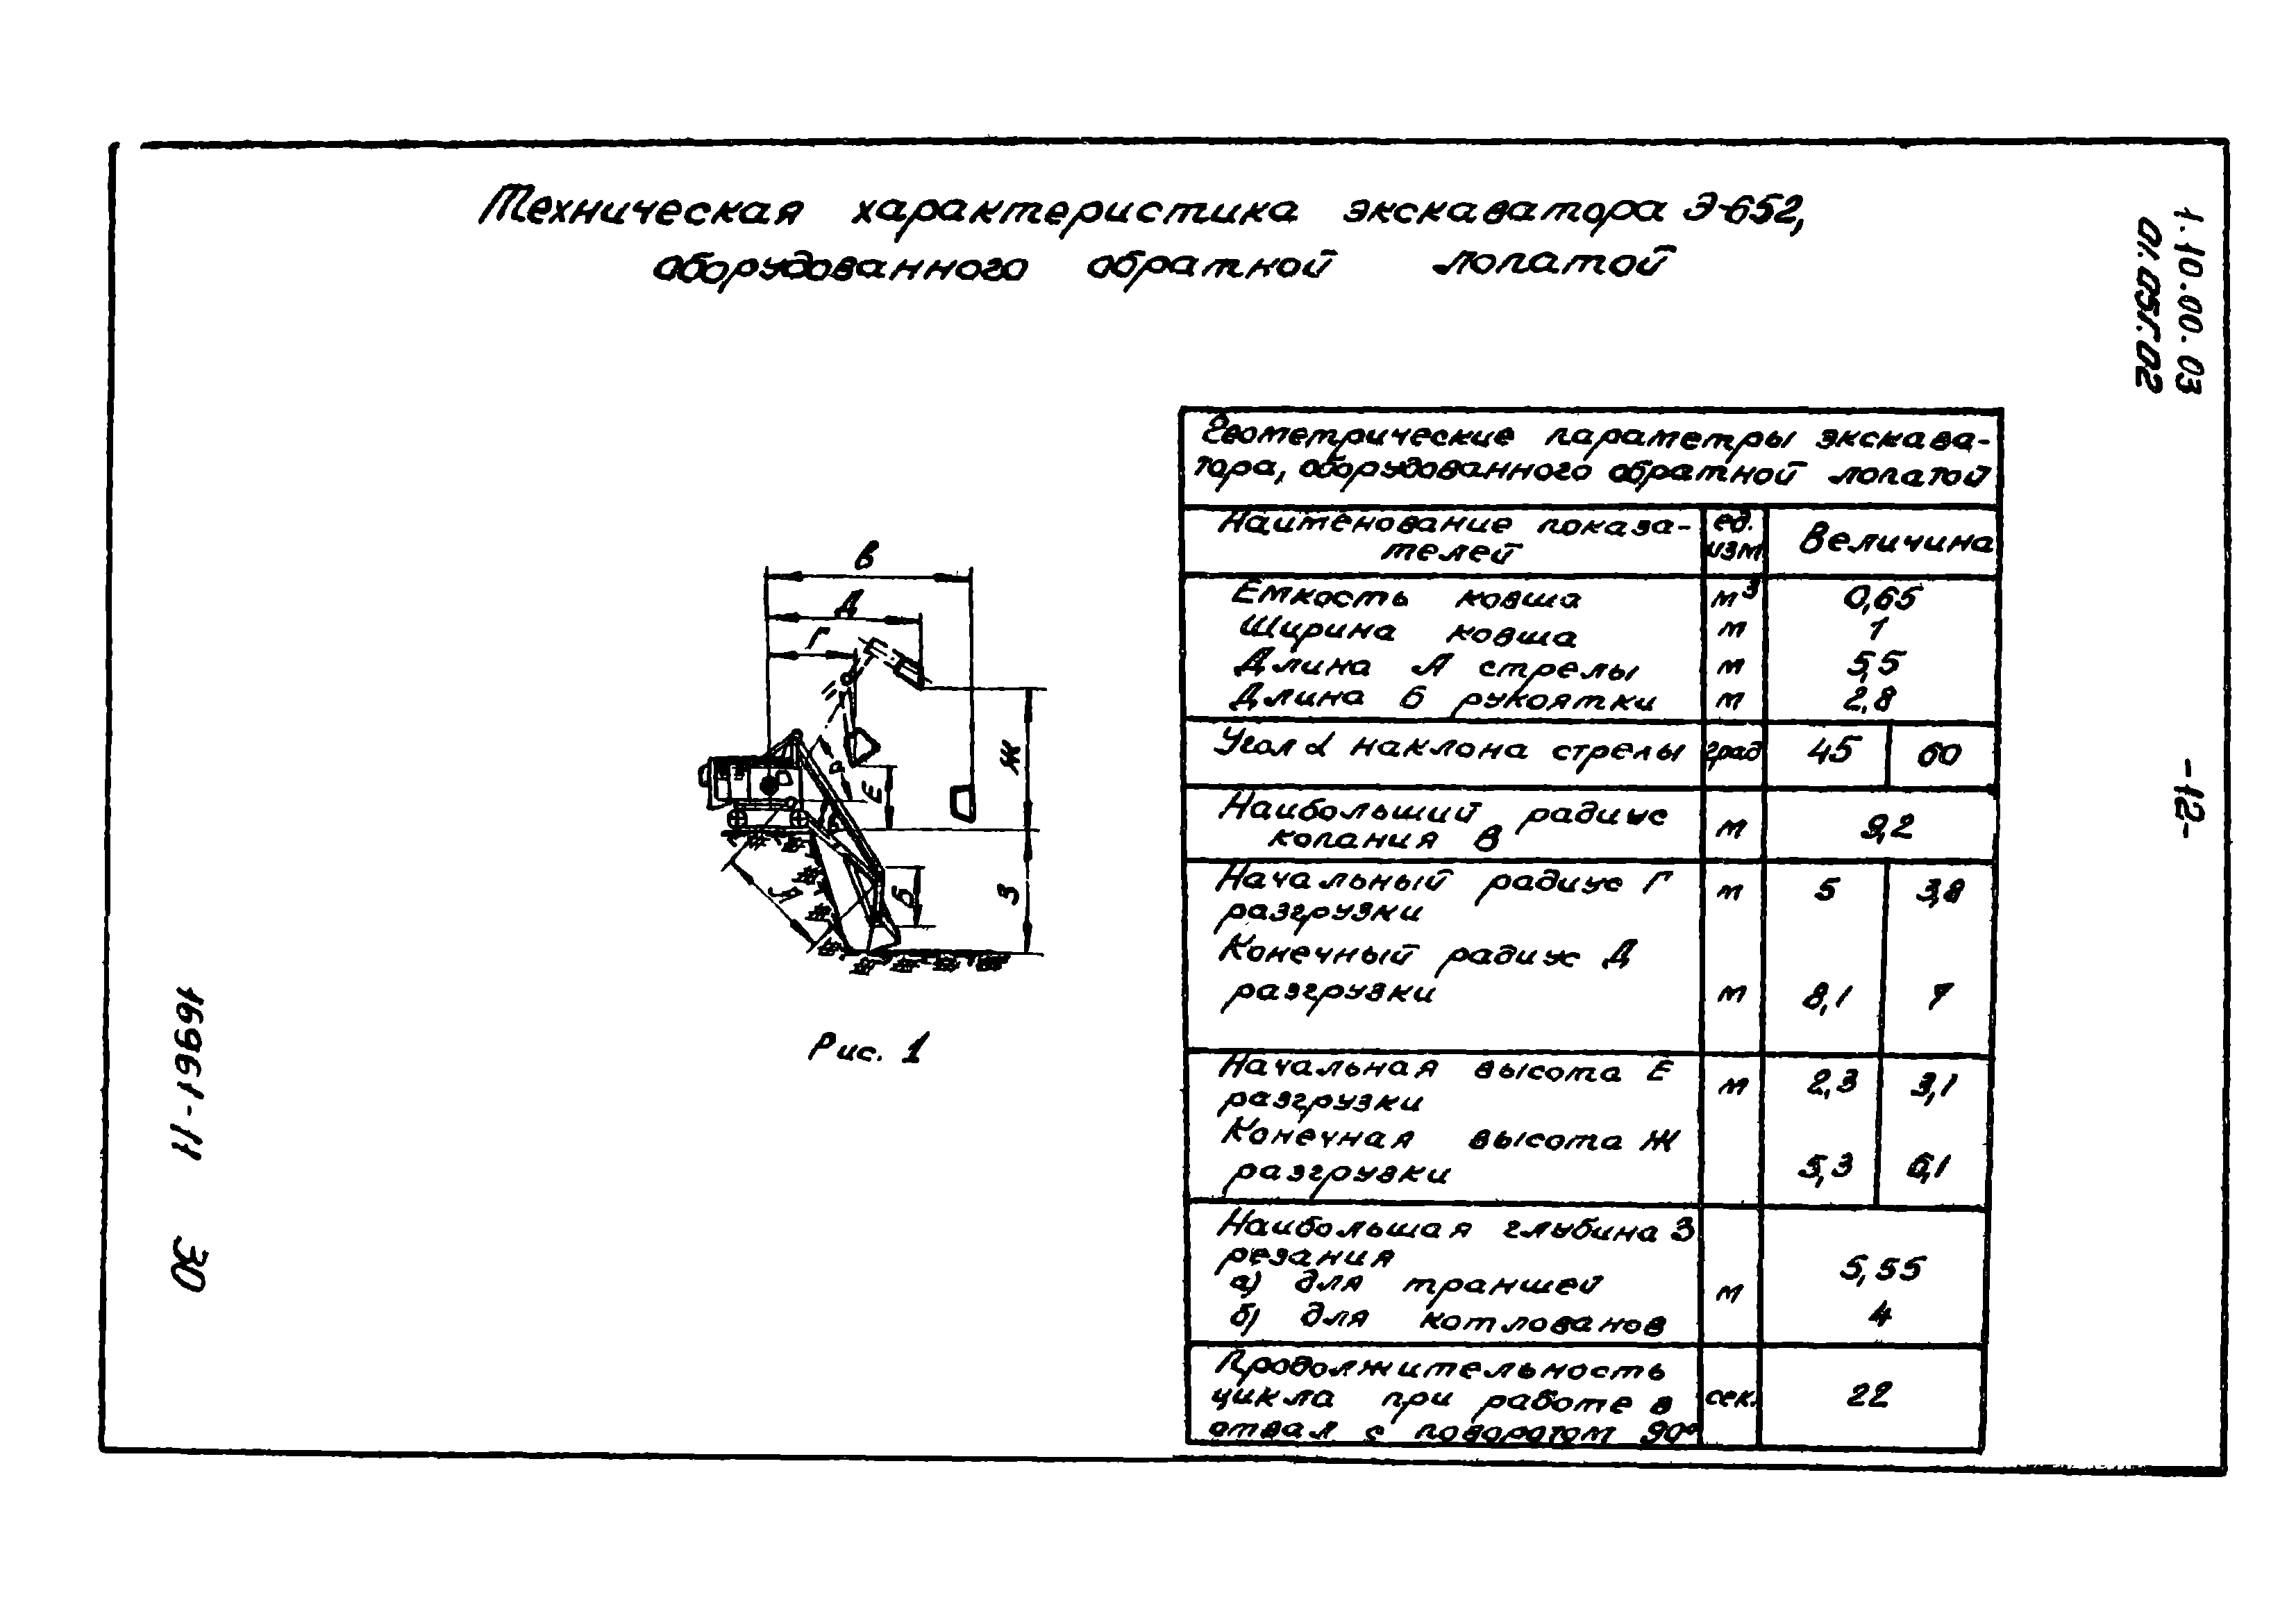 Техническая характеристика экскаватора Э-652,
оборудованного обратной лопатой
1.10.00.03
01.05Г.02
-12-
В
Д
Г
Ж
Е
Б
З
Рис. 1
Геометрические параметры экскава-
тора, оборудованного обратной лопатой
Наименование показа-
телей
ед.
изм
Величина
Емкость ковша м³ 0,65
Ширина ковша м 1
Длина А стрелы м 5,5
Длина Б рукоятки м 2,8
Угол α наклона стрелы град 45 60
Наибольший радиус
копания В м 9,2
Начальный радиус Г м 5 3,8
разгрузки
Конечный радиус Д
разгрузки м 8,1 7
Начальная высота Е м 2,3 3,1
разгрузки
Конечная высота Ж
разгрузки 5,3 6,1
Наибольшая глубина З
резания
а) для траншей м 5,55
б) для котлованов 4
Продолжительность
цикла при работе в сек. 22
отвал с поворотом 90°
16961-11
30